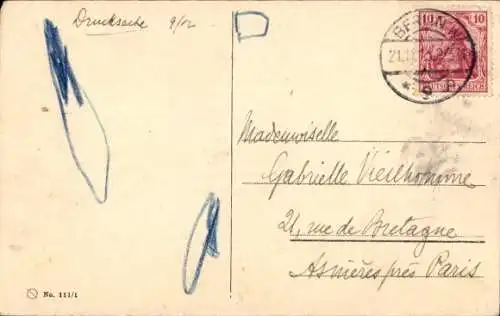 Drucksache
10 10
BERLIN W
Mademoiselle
Gabrielle Vieilhomme
21, rue de Bretagne
Asnières près Paris
No. 111/1